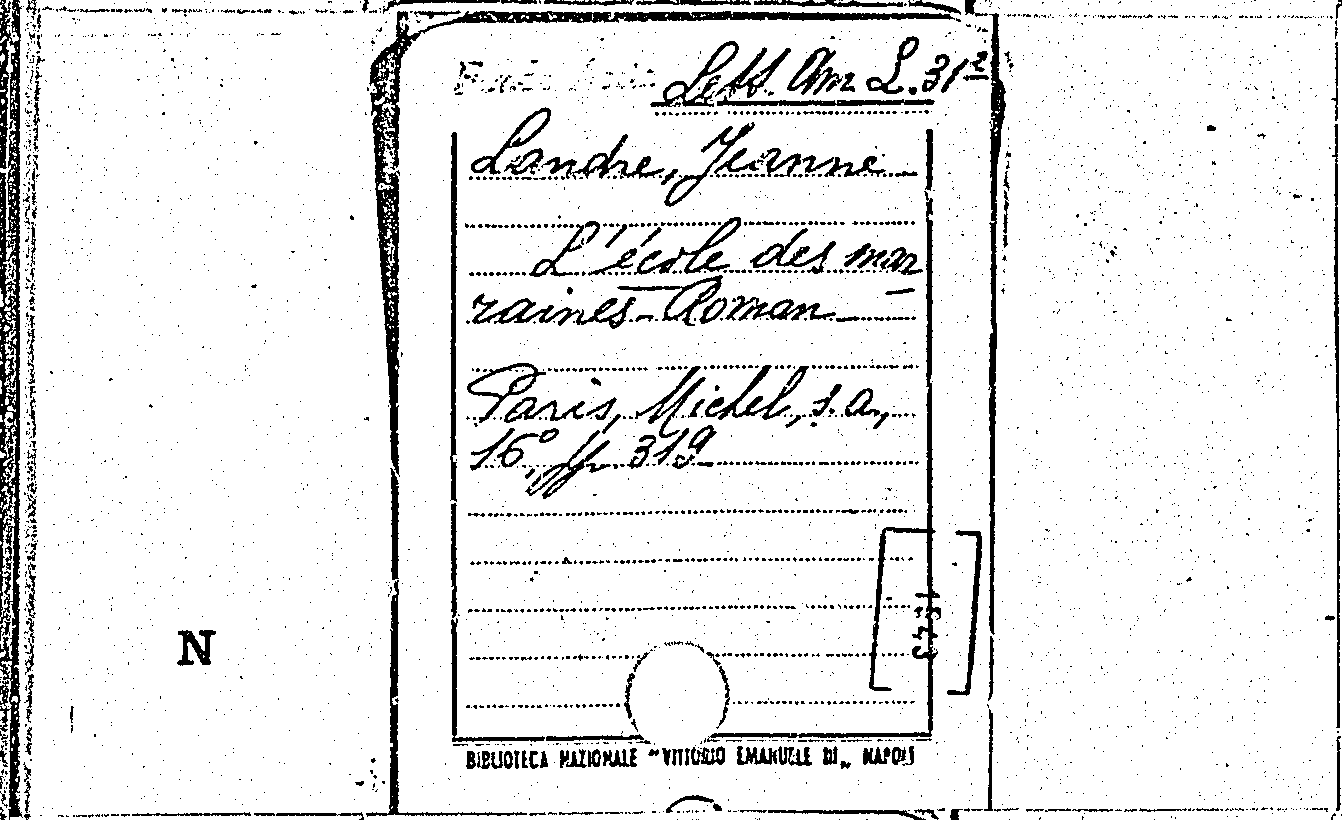 Lett. Am L. 31²
Landre, Jeanne
L'école des mar
raines - Roman
Paris, Michel, s.a.,
16°, pp 319
N
BIBLIOTECA NAZIONALE "VITTORIO EMANUELE III„ NAPOLI